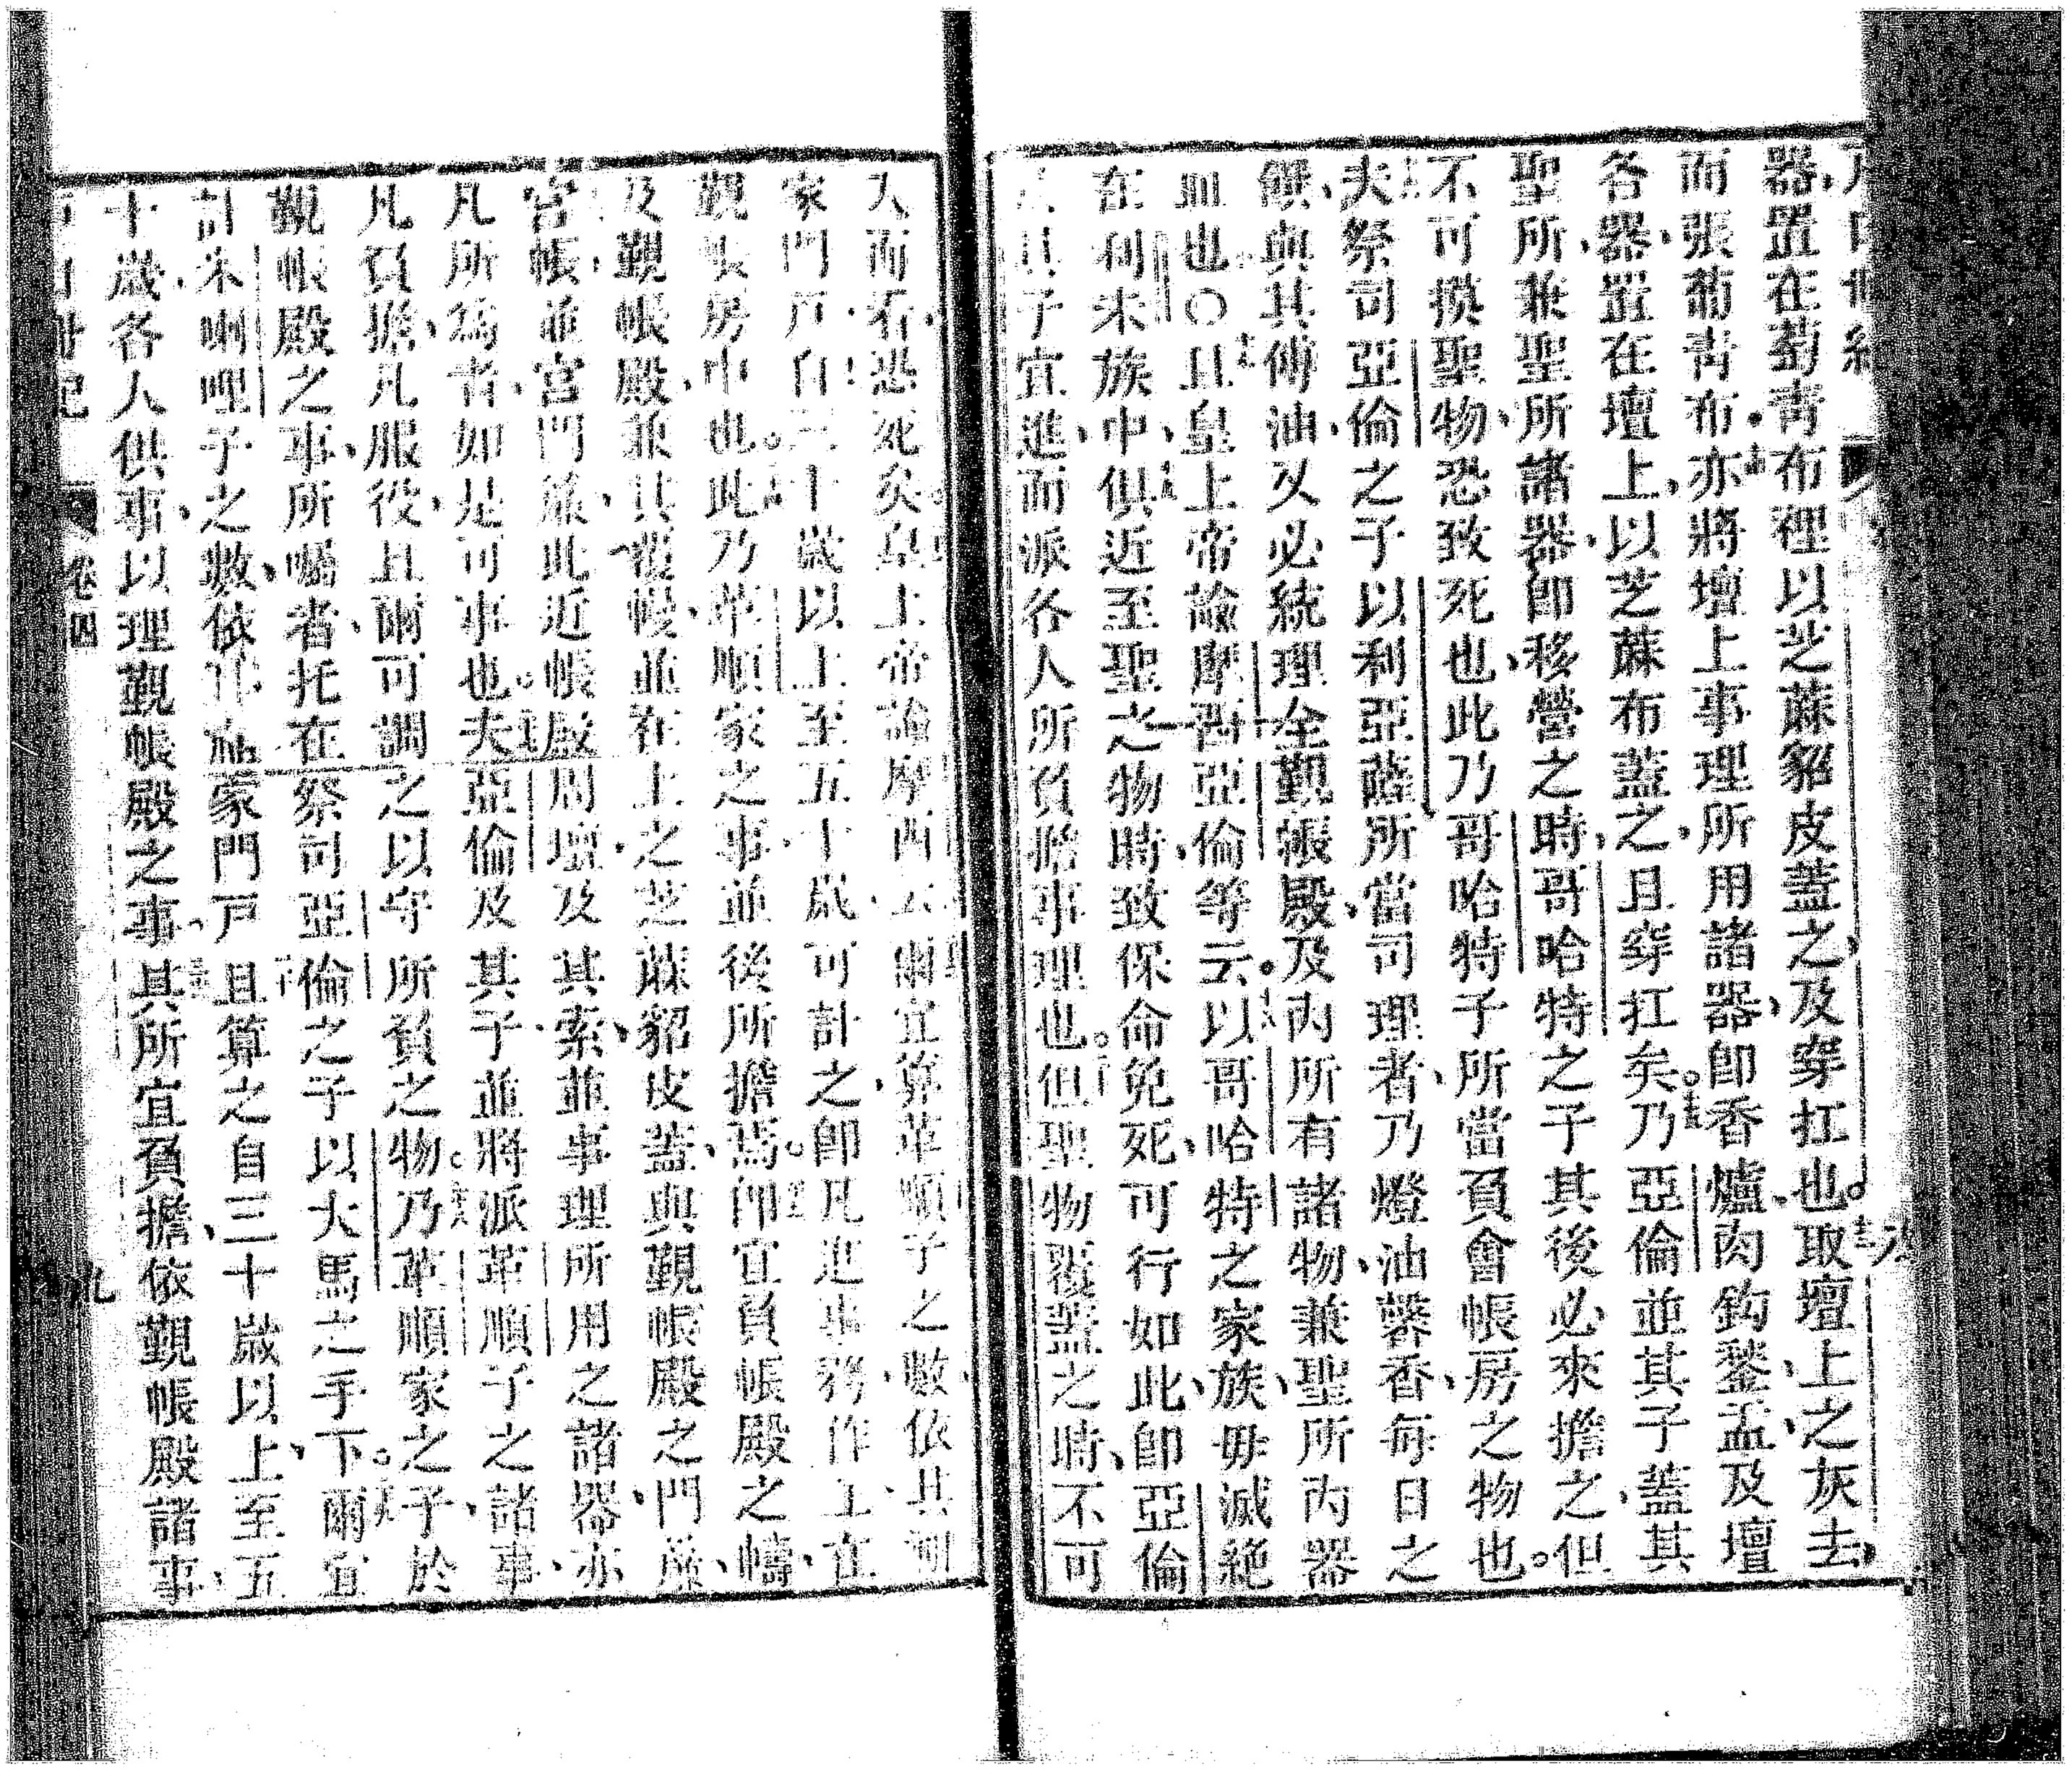 器置在萄靑布裡以芝蔴貂皮蓋之及穿扛也取壇上之灰去
而張葡靑布亦將壇上事理所用諸器卽香爐肉鈎鍫盂及壇
各器置在壇上以芝蔴布蓋之且穿扛矣乃亞倫並其子蓋其
聖所兼聖所諸器卽移營之時哥哈特之子其後必來擔之但
不可摸聖物恐致死也此乃哥哈特子所當負會帳房之物也
夫祭司亞倫之子以利亞薩所當司理者乃燈油馨香每日之
饌與其傅油又必統理全覲帳殿及內所有諸物兼聖所內器
皿也〇且皇上帝諭摩西亞倫等云以哥哈特之家族毋滅絕
在利未族中俱近至聖之物時致保命免死可行如此卽亞倫
其子宜進而派各人所負擔事理也但聖物覆蓋之時不可
入而看恐死矣皇上帝諭摩西云爾宜算革順子之數依其
家門戶自三十歲以上至五十歲可計之卽凡進事務作工在
覲帳房中也此乃革順家之事並後所擔焉卽宜負帳殿之幬
及覲帳殿兼其覆幔並在上之芝蔴貂皮蓋與覲帳殿之門簾
宮帳並宮門簾此近帳殿周壇及其索並事理所用之諸器亦
凡所爲者如是可事也夫亞倫及其子並將派革順子之諸事
凡負擔凡服役且爾可調之以守所負之物乃革順家之子於
覲帳殿之事所囑者托在祭司亞倫之子以大馬之手下爾宜
計米喇哩子之數依家門戸且算之自三十歲以上至五
十歲各人供事以理覲帳殿之事其所宜負擔依覲帳殿諸事
卷四
九